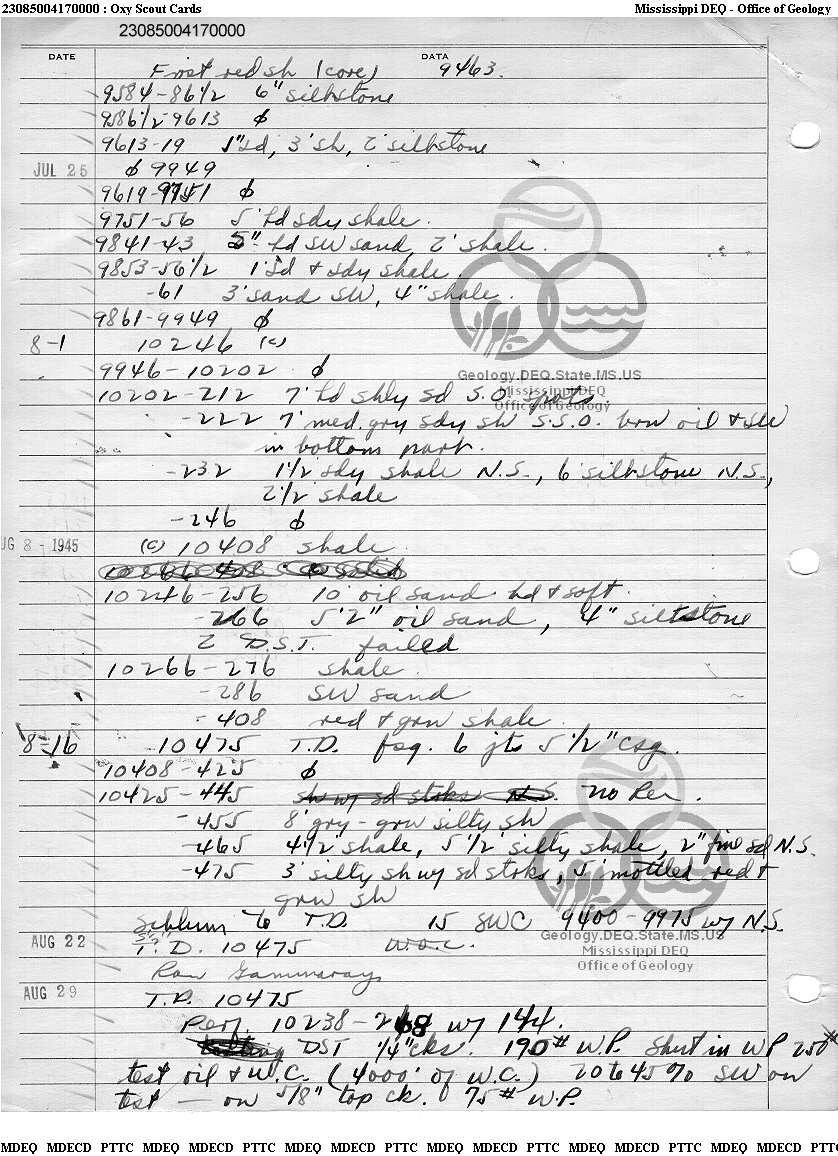 23085004170000 : Oxy Scout Cards Mississippi DEQ - Office of Geology
23085004170000
DATE DATA
First red sh (core) 9463.
9584-86 1/2 6" siltstone
9586 1/2-9613 ϕ
9613-19 1" sd, 3' sh, 2' siltstone
JUL 25 ϕ 9949
9619-9751 ϕ
9751-56 5' hd sdy shale.
9841-43 5" hd SW sand, 2' shale.
9853-56 1/2 1' sd & sdy shale.
-61 3' sand SW, 4" shale.
9861-9949 ϕ
8-1 10246 (c)
9946-10202 ϕ
Geology.DEQ.State.MS.US
10202-212 7' hd shly sd S.O. spots.
Mississippi DEQ
Office of Geology
-222 7' med. gry sdy sh S.S.O. brn oil & SW
in bottom part.
-232 1 1/2 sdy shale N.S., 6' siltstone N.S.,
2 1/2' shale
-246 ϕ
UG 8-1945 (c) 10408 shale
10246-256 10' oil sand hd & soft.
-266 5'2" oil sand, 4" siltstone
2 D.S.T. failed
10266-276 shale.
-286 SW sand
-408 red & grn shale.
8-16 10475 T.D. fsg. 6 jts 5 1/2" csg.
10408-425 ϕ
10425-445 sh w/ sd strks N.S. no Rec.
-455 8' gry-grn silty sh
-465 4 1/2' shale, 5 1/2 silty shale, 2" fine sd N.S.
-475 3' silty sh w/ sd strks, 5' mottled red &
grn sh
Schlum to T.D. 15 SWC 9400-9975 w/ N.S.
5 1/2"
Geology.DEQ.State.MS.US
AUG 22 T.D. 10475 W.O.C.
Mississippi DEQ
Office of Geology
Ran Gammaray
AUG 29 T.D. 10475
Perf. 10238-268 w/ 144.
DST 1/4" cks. 190# W.P. Shut in WP 250#
test oil & W.C. (4000' of W.C.) 20 to 45% SW on
test - on 5/8" top ck. 75# W.P.
MDEQ MDECD PTTC MDEQ MDECD PTTC MDEQ MDECD PTTC MDEQ MDECD PTTC MDEQ MDECD PTTC MDEQ MDECD PTT